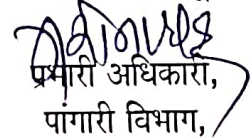 प्रभारी अधिकारी,
पांगारी विभाग,